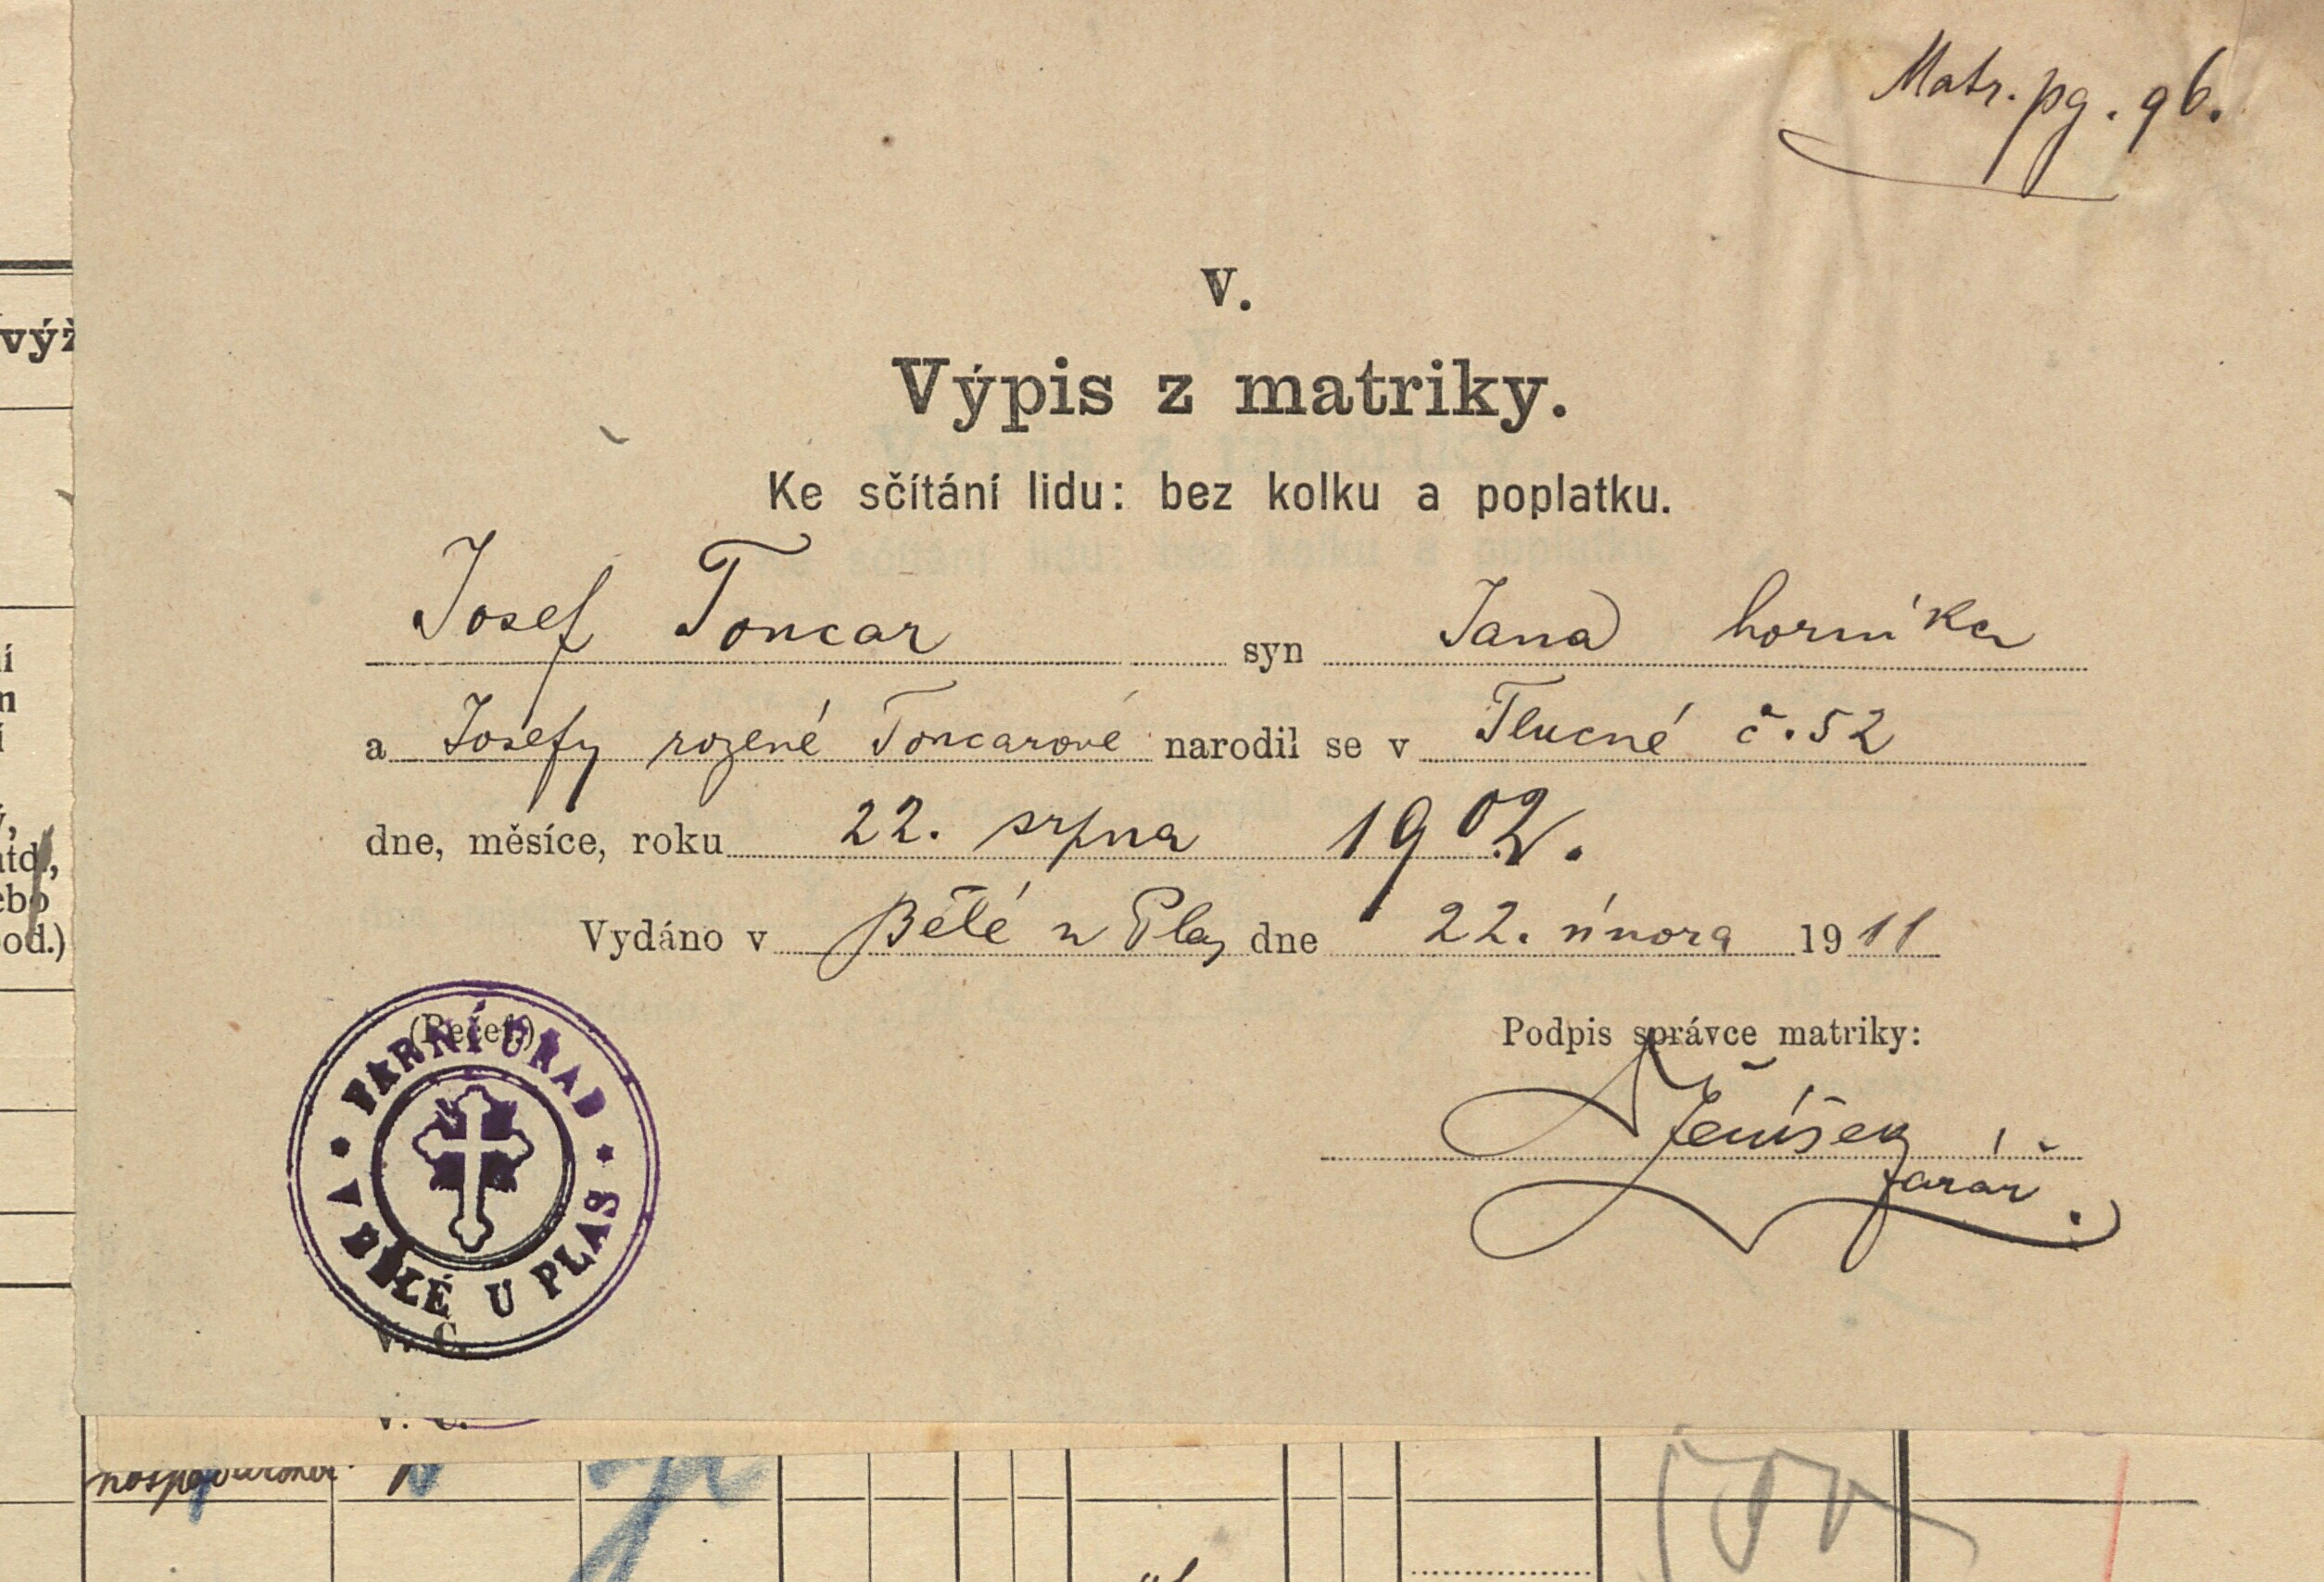 Matr. pg. 96.
V.
Výpis z matriky.
Ke sčítání lidu: bez kolku a poplatku.
Josef Toncar syn Jana horníka
a Josefy rozené Toncarové narodil se v Tlucné č. 52
dne, měsíce, roku 22. srpna 1902.
Vydáno v Bělé u Plas dne 22. února 1911
(Pečeť)
Podpis správce matriky:
FARNÍ ÚŘAD
V BĚLÉ U PLAS
Jeníšek
farář.
V. Č.
V. Č.
výž
í
n
í
ý,
atd.,
ebo
od.)